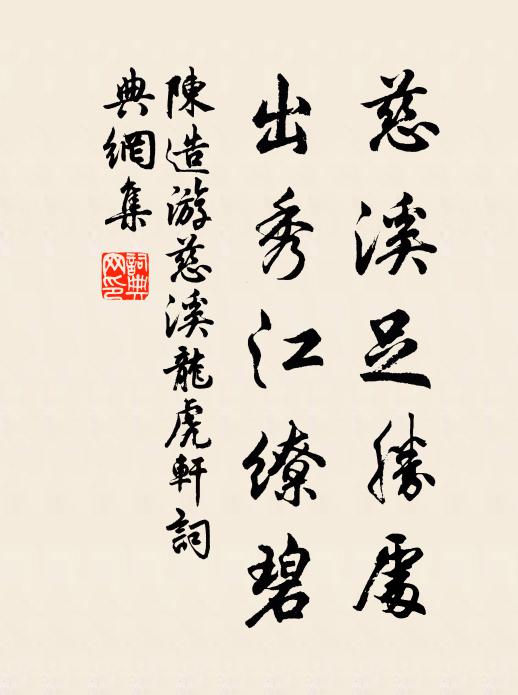 慈溪足勝處
出秀江繚碧
陳造游慈溪龍虎軒詞
典網集
詞典網印